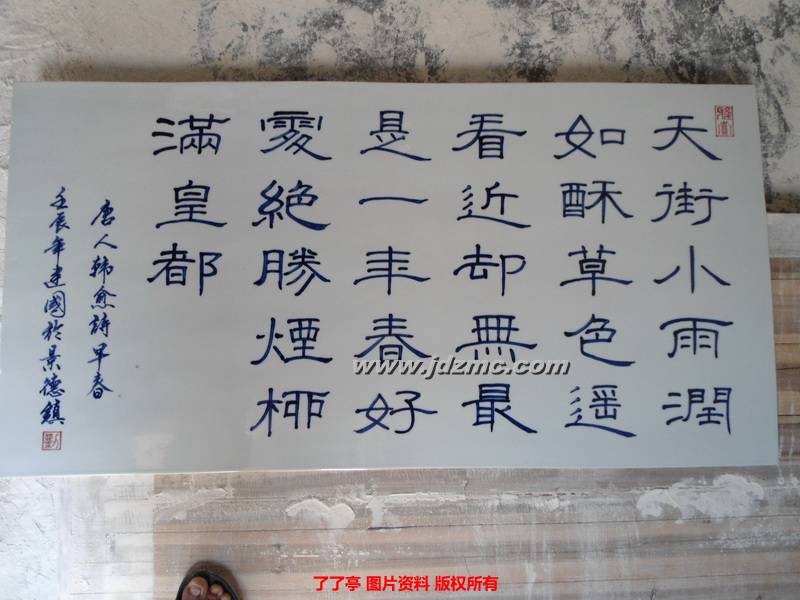 天街小雨潤
如酥草色遥
看近却無最
是一年春好
處絕勝煙柳
滿皇都
唐人韩愈詩早春
壬辰年建國於景德鎮
www.jdzmc.com
了了亭 图片资料 版权所有